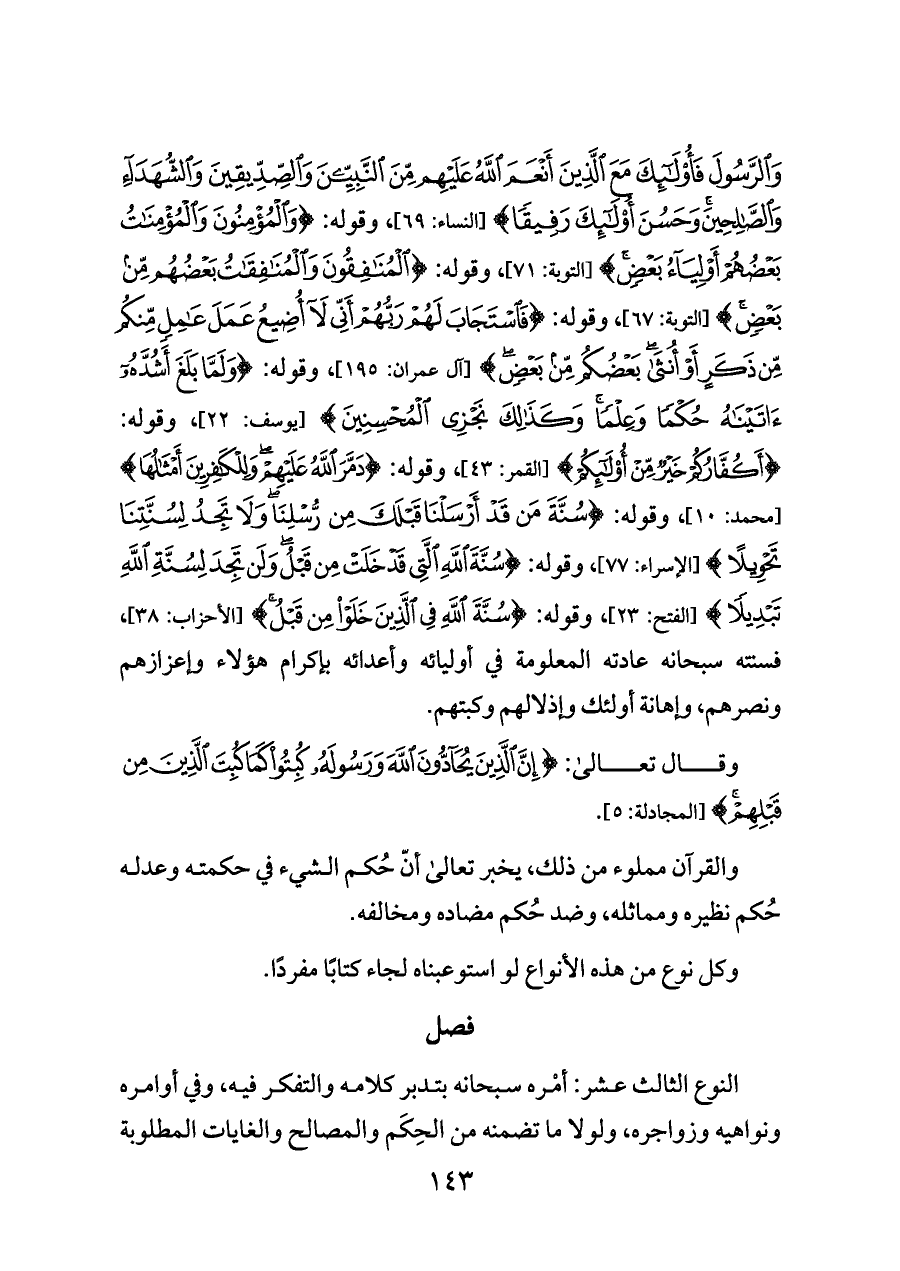 وَٱلرَّسُولَ فَأُوْلَٰٓئِكَ مَعَ ٱلَّذِينَ أَنۡعَمَ ٱللَّهُ عَلَيۡهِم مِّنَ ٱلنَّبِيِّـۧنَ وَٱلصِّدِّيقِينَ وَٱلشُّهَدَآءِ
وَٱلصَّٰلِحِينَۚ وَحَسُنَ أُوْلَٰٓئِكَ رَفِيقٗا﴾ [النساء: ٦٩]، وقوله: ﴿وَٱلۡمُؤۡمِنُونَ وَٱلۡمُؤۡمِنَٰتُ
بَعۡضُهُمۡ أَوۡلِيَآءُ بَعۡضٖۚ﴾ [التوبة: ٧١]، وقوله: ﴿ٱلۡمُنَٰفِقُونَ وَٱلۡمُنَٰفِقَٰتُ بَعۡضُهُم مِّنۢ
بَعۡضٖۚ﴾ [التوبة: ٦٧]، وقوله: ﴿فَٱسۡتَجَابَ لَهُمۡ رَبُّهُمۡ أَنِّي لَآ أُضِيعُ عَمَلَ عَٰمِلٖ مِّنكُم
مِّن ذَكَرٍ أَوۡ أُنثَىٰۖ بَعۡضُكُم مِّنۢ بَعۡضٖۖ﴾ [آل عمران: ١٩٥]، وقوله: ﴿وَلَمَّا بَلَغَ أَشُدَّهُۥٓ
ءَاتَيۡنَٰهُ حُكۡمٗا وَعِلۡمٗاۚ وَكَذَٰلِكَ نَجۡزِي ٱلۡمُحۡسِنِينَ﴾ [يوسف: ٢٢]، وقوله:
﴿أَكُفَّارُكُمۡ خَيۡرٞ مِّنۡ أُوْلَٰٓئِكُمۡ﴾ [القمر: ٤٣]، وقوله: ﴿دَمَّرَ ٱللَّهُ عَلَيۡهِمۡۖ وَلِلۡكَٰفِرِينَ أَمۡثَٰلُهَا﴾
[محمد: ١٠]، وقوله: ﴿سُنَّةَ مَن قَدۡ أَرۡسَلۡنَا قَبۡلَكَ مِن رُّسُلِنَاۖ وَلَا تَجِدُ لِسُنَّتِنَا
تَحۡوِيلًا﴾ [الإسراء: ٧٧]، وقوله: ﴿سُنَّةَ ٱللَّهِ ٱلَّتِي قَدۡ خَلَتۡ مِن قَبۡلُۖ وَلَن تَجِدَ لِسُنَّةِ ٱللَّهِ
تَبۡدِيلٗا﴾ [الفتح: ٢٣]، وقوله: ﴿سُنَّةَ ٱللَّهِ فِي ٱلَّذِينَ خَلَوۡاْ مِن قَبۡلُۚ﴾ [الأحزاب: ٣٨]،
فسنته سبحانه عادته المعلومة في أوليائه وأعدائه بإكرام هؤلاء وإعزازهم
ونصرهم، وإهانة أولئك وإذلالهم وكبتهم.
وقال تعالىٰ: ﴿إِنَّ ٱلَّذِينَ يُحَآدُّونَ ٱللَّهَ وَرَسُولَهُۥ كُبِتُواْ كَمَا كُبِتَ ٱلَّذِينَ مِن
قَبۡلِهِمۡۚ﴾ [المجادلة: ٥].
والقرآن مملوء من ذلك، يخبر تعالىٰ أنّ حُكم الشيء في حكمته وعدله
حُكم نظيره ومماثله، وضد حُكم مضاده ومخالفه.
وكل نوع من هذه الأنواع لو استوعبناه لجاء كتابًا مفردًا.
فصل
النوع الثالث عشر: أمْره سبحانه بتدبر كلامه والتفكر فيه، وفي أوامره
ونواهيه وزواجره، ولولا ما تضمنه من الحِكَم والمصالح والغايات المطلوبة
١٤٣